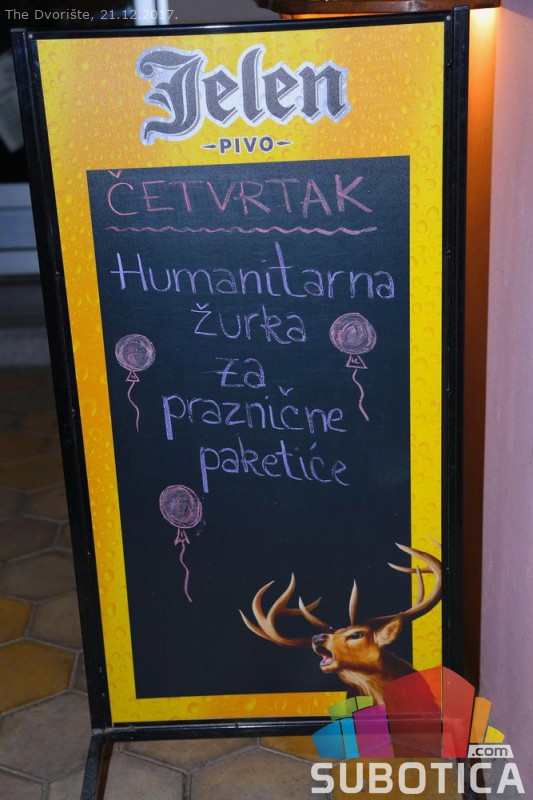 The Dvorište, 21.12.2017.
Jelen
PIVO
ČETVRTAK
Humanitarna
žurka
za
praznične
paketiće
.com
SUBOTICA